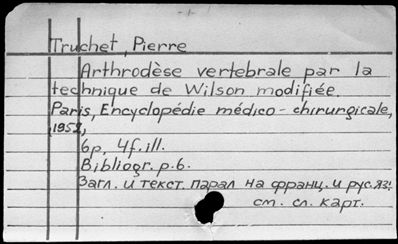 Truchet, Pierre
Arthrodèse vertebrale par la
technique de Wilson modifiée.
Paris, Encyclopédie médico-chirurgicale,
1952,
6p, 4f. ill.
Bibliogr. p. 6.
Загл. и текст. парал на франц. и рус. яз.
см. сл. карт.